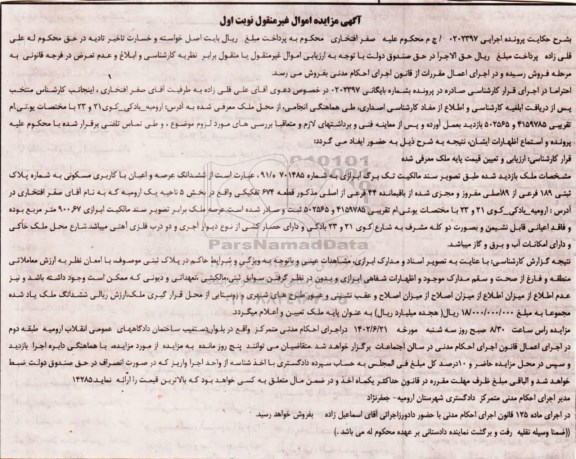 آگهی مزایده اموال غیرمنقول نوبت اول
بشرح حکایت پرونده اجرایی ۰۲۰۳۳۹۷ / ج م محکوم علیه صفر افتخاری محکوم به پرداخت مبلغ ریال بابت اصل خواسته و خسارت تاخیر تادیه در حق محکوم له علی
قلی زاده پرداخت مبلغ ریال حق الاجرا در حق صندوق دولت با توجه به ارزیابی اموال غیرمنقول یا منقول برابر نظریه کارشناسی و ابلاغ و عدم تعرض در فرجه قانونی به
مرحله فروش رسیده و در اجرای اعمال مقررات از قانون اجرای احکام مدنی بفروش می رسد.
احتراما در اجرای قرار کارشناسی صادره در پرونده بشماره بایگانی ۰۲۰۳۳۹۷ در خصوص دعوی آقای علی قلی زاده به طرفیت آقای صفر افتخاری ، اینجانب کارشناس منتخب
پس از دریافت ابلغیه کارشناسی و اطلاع از مفاد کارشناسی اصداری، طی هماهنگی انجامی، از محل ملک معرفی شده به آدرس: ارومیه_یادکی_کوی ۲۱ و ۲۳ با مختصات یوتی‌ام
تقریبی ۴۱۵۹۷۸۵ و ۵۰۲۵۶۵ بازدید بعمل آورده و پس از معاینه فنی و برداشتهای لازم و متعاقبا بررسی های مورد لزوم موضوع ، و طی تماس تلفنی برقرار شده با محکوم علیه
پرونده و استماع اظهارات ایشان، نتیجه به شرح ذیل به حضور ایفاد می گردد؛
قرار کارشناسی: ارزیابی و تعیین قیمت پایه ملک معرفی شده
مشخصات ملک بازدید شده طبق تصویر سند مالکیت تک برگ ابرازی به شماره ۷۰۱۴۸۵ ۹۱/۰ عبارت است از ششدانگ عرصه و اعیان با کاربری مسکونی به شماره پلاک
ثبتی ۱۸۹ فرعی از ۸۹اصلی مفروز و مجزی شده از باقیمانده ۴۴ فرعی از اصلی مذکور قطعه ۶۷۴ تفکیکی واقع در بخش ۵ ناحیه یک ارومیه که به نام آقای صفر افتخاری در
آدرس : ارومیه_یادکی_کوی ۲۱ و ۲۳ با مختصات یوتی‌ام تقریبی ۴۱۵۹۷۸۵ و ۵۰۲۵۶۵ ثبت و صادر شده است عرصه ملک برابر تصویر سند مالکیت ابرازی ۹۰۰.۶۷ متر مربع بوده
و فاقد اعیانی قابل نشیمن و بصورت دو کله مشرف به شارع کوی ۲۱ و ۲۳ یادگی و دارای حصار کشی از نوع دیوار آجری و دو درب فلزی آهنی میباشد شارع محل ملک خاکی
و دارای امکانات آب و برق و گاز میباشد.
نتیجه گزارش کارشناسی: با عنایت به تصویر اسناد و مدارک ابرازی، مشاهدات عینی و باتوجه به ویژگی و شرایط حاکم در پلاک ثبتی موصوف، با امعان نظر به ارزش معاملاتی
منطقه و فارغ از صحت و سقم مدارک موجود و اظهارات شفاهی ابرازی و بدون در نظر گرفتن سوابق ثبتی،مالکیتی ،تعهداتی و دیونی که ممکن است وجود داشته باشد و نیز
عدم اطلاع از میزان اطلاع از میزان اصلاح از میزان اصلاح و عقب نشینی و عبور طرح های شهری و روستایی از محل قرار گیری ملک،ارزش ریالی ششدانگ ملک یاد شده
مجموعا به مبلغ ۱۸/۰۰۰/۰۰۰/۰۰۰ ریال( هجده میلیارد ریال) به عنوان پایه ملک تعیین و اعلام میگردد.
مزایده راس ساعت ۸/۳۰ صبح روز سه شنبه مورخه ۱۴۰۲/۶/۲۱ دراجرای احکام مدنی متمرکز واقع در بلوار،دستغیب ساختمان دادگاههای عمومی انقلاب ارومیه طبقه دوم
در اجرای اعمال قانون اجرای احکام مدنی در سالن اجتماعات برگزار خواهد شد متقاضیان می توانند پنج روز مانده به مزایده از مورد مزایده، با هماهنگی دایره اجرا بازدید
و سپس در محل مزایده حاضر و ۱۰درصد کل مبلغ فی المجلس به حساب سپرده دادگستری با اخذ شناسه از واحد اجرا واریز که در صورت انصراف در حق صندوق دولت ضبط
خواهد شد و الباقی مبلغ ظرف مهلت مقرره در قانون حداکثر یکماه اخذ و در ضمن مال متعلق به کسی خواهد بود که بالاترین قیمت را ارائه نماید ۱۴۲۸۵
مدیر اجرای احکام مدنی متمرکز دادگستری شهرستان ارومیه- جعفرنژاد
در اجرای ماده ۱۲۵ قانون اجرای احکام مدنی با حضور دادورزاجراتی آقای اسماعیل زاده بفروش خواهد رسید.
((ضمنا وسیله نقلیه رفت و برگشت نماینده دادستانی بر عهده محکوم له می باشد .)
ParsNamadData